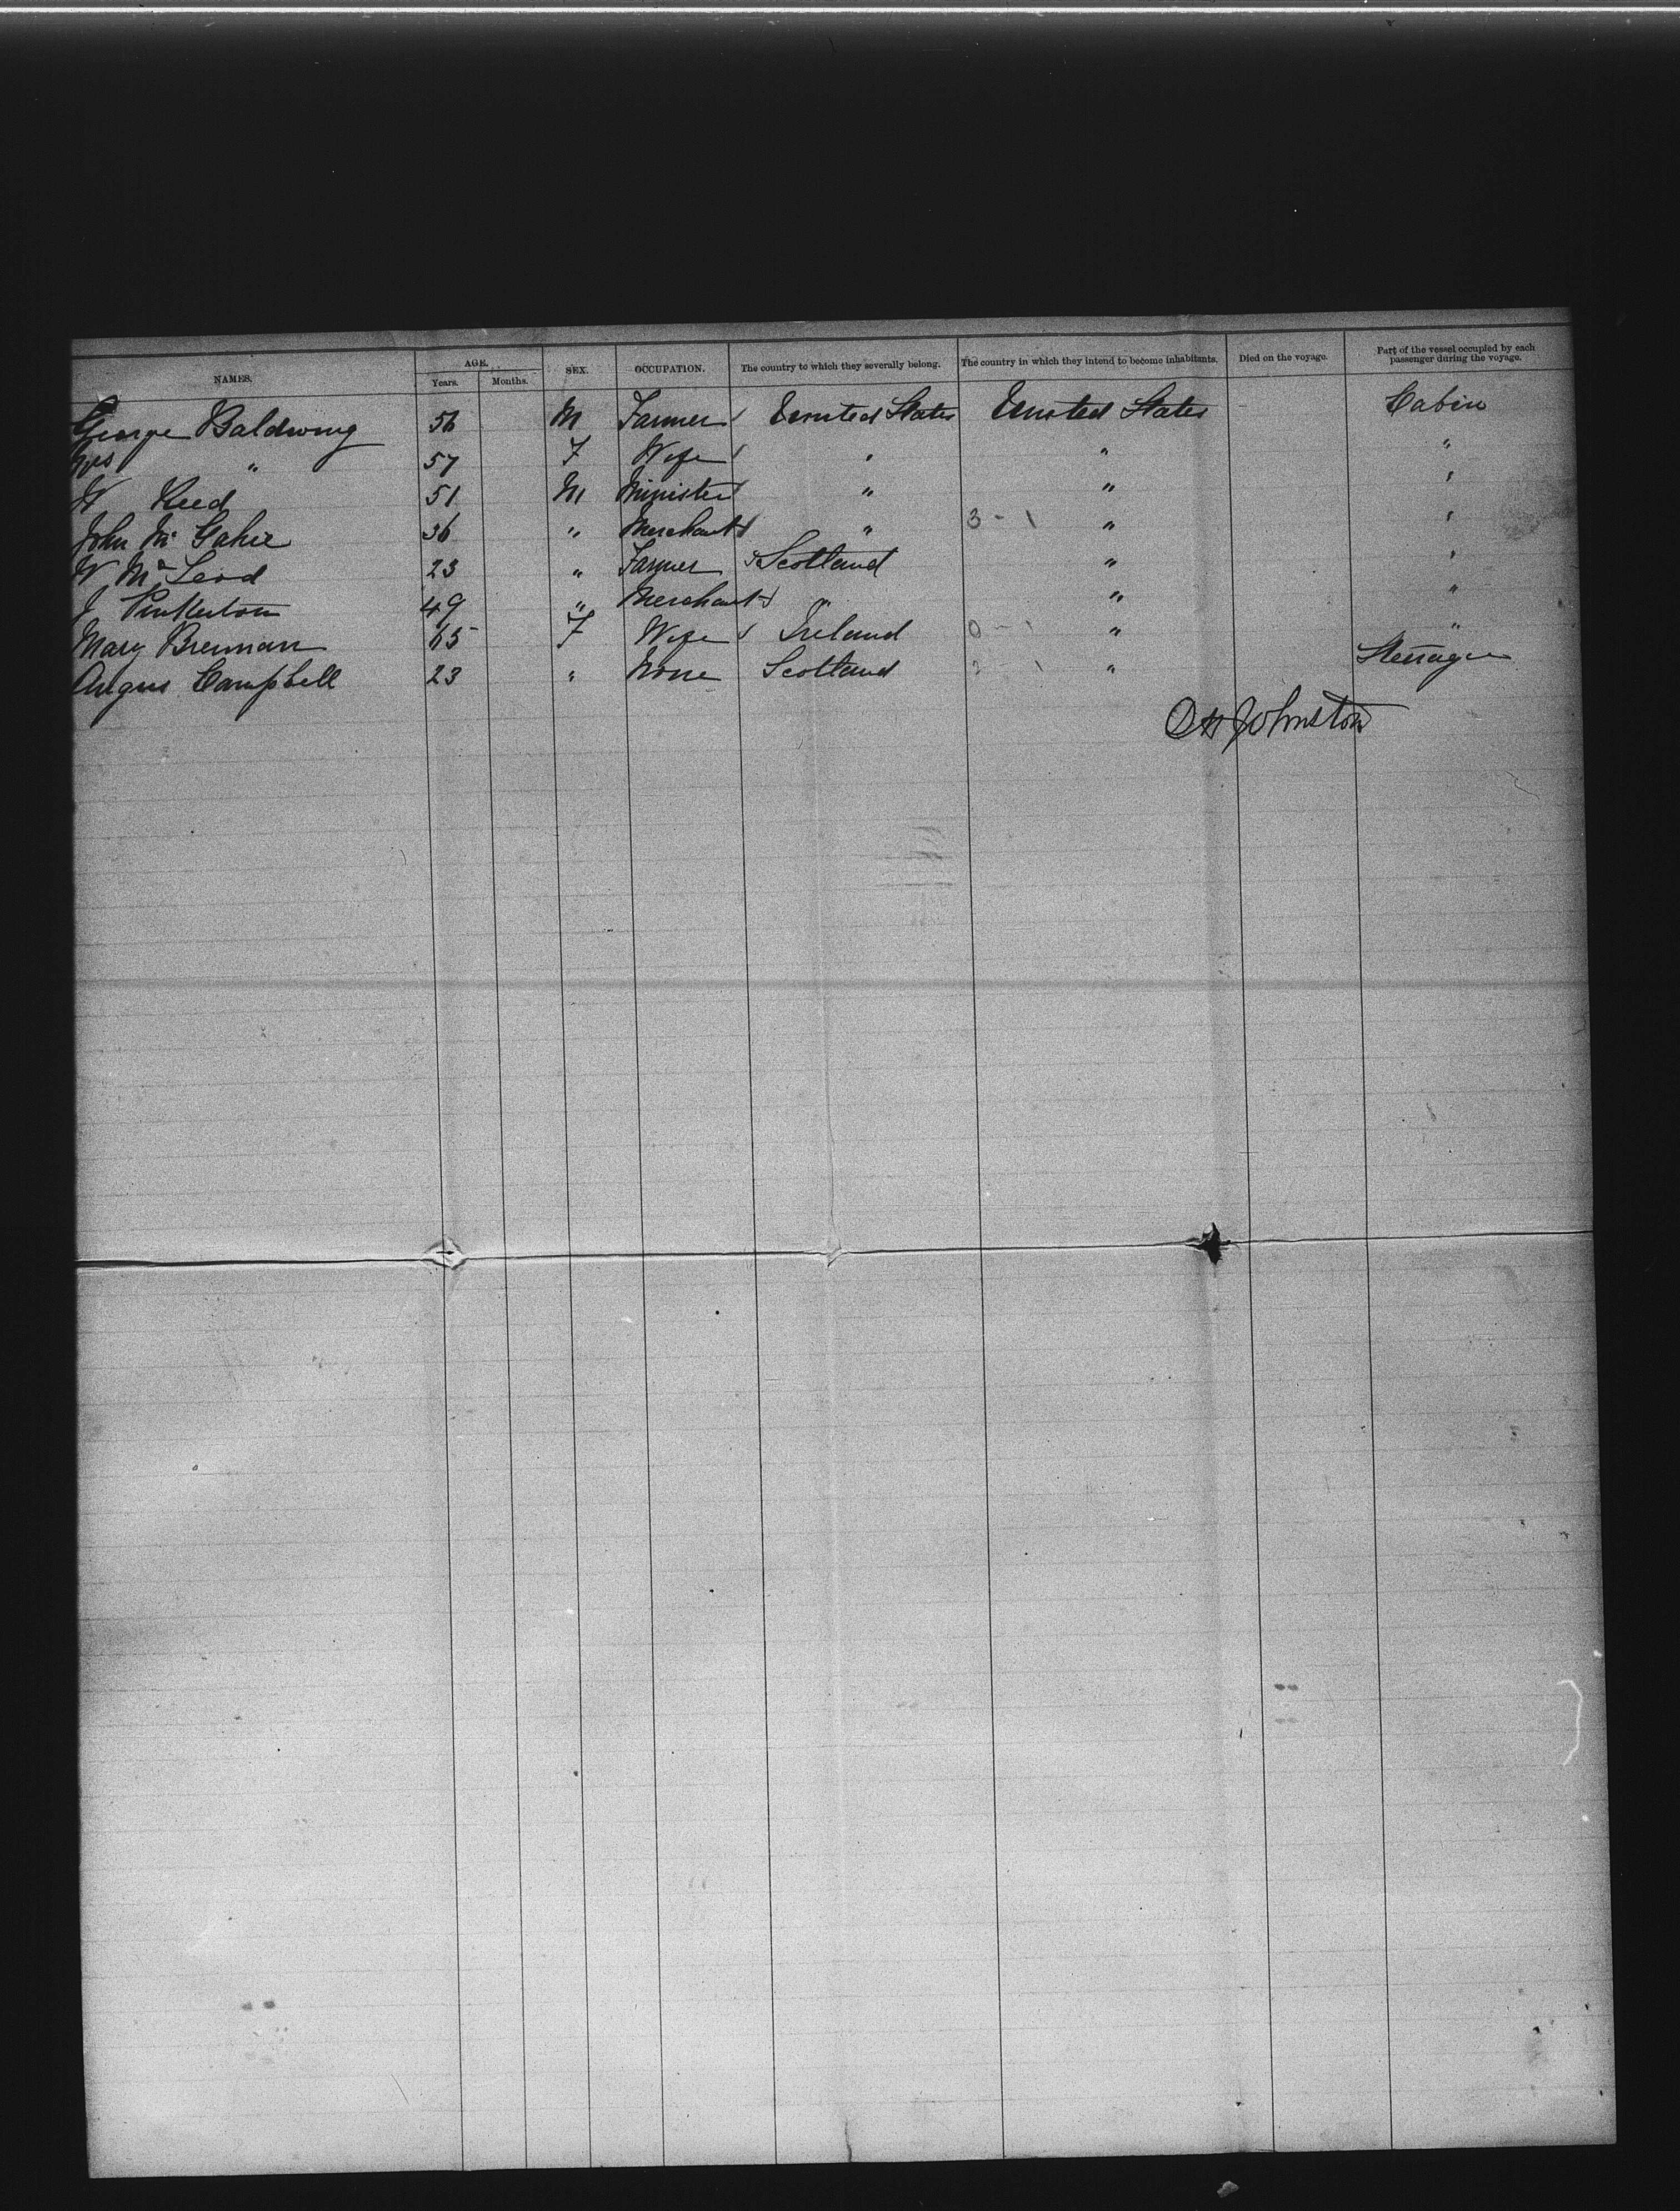 NAMES. AGE. Years. Months. SEX. OCCUPATION. The country to which they severally belong. The country in which they intend to become inhabitants. Died on the voyage. Part of the vessel occupied by each passenger during the voyage.
George Baldwing 56 M Farmer United States United States Cabin
Mrs " 57 F Wife " " "
W Reed 51 M Minister " " "
John Mc 36 " Merchant " 3 - 1 " "
W McLeod 23 " Farmer Scotland " "
J Pinkerton 49 " Merchant " " "
Mary Brennan 65 F Wife Ireland 0 - 1 " "
Angus Campbell 23 " None Scotland - 1 " Steerage
Johnston